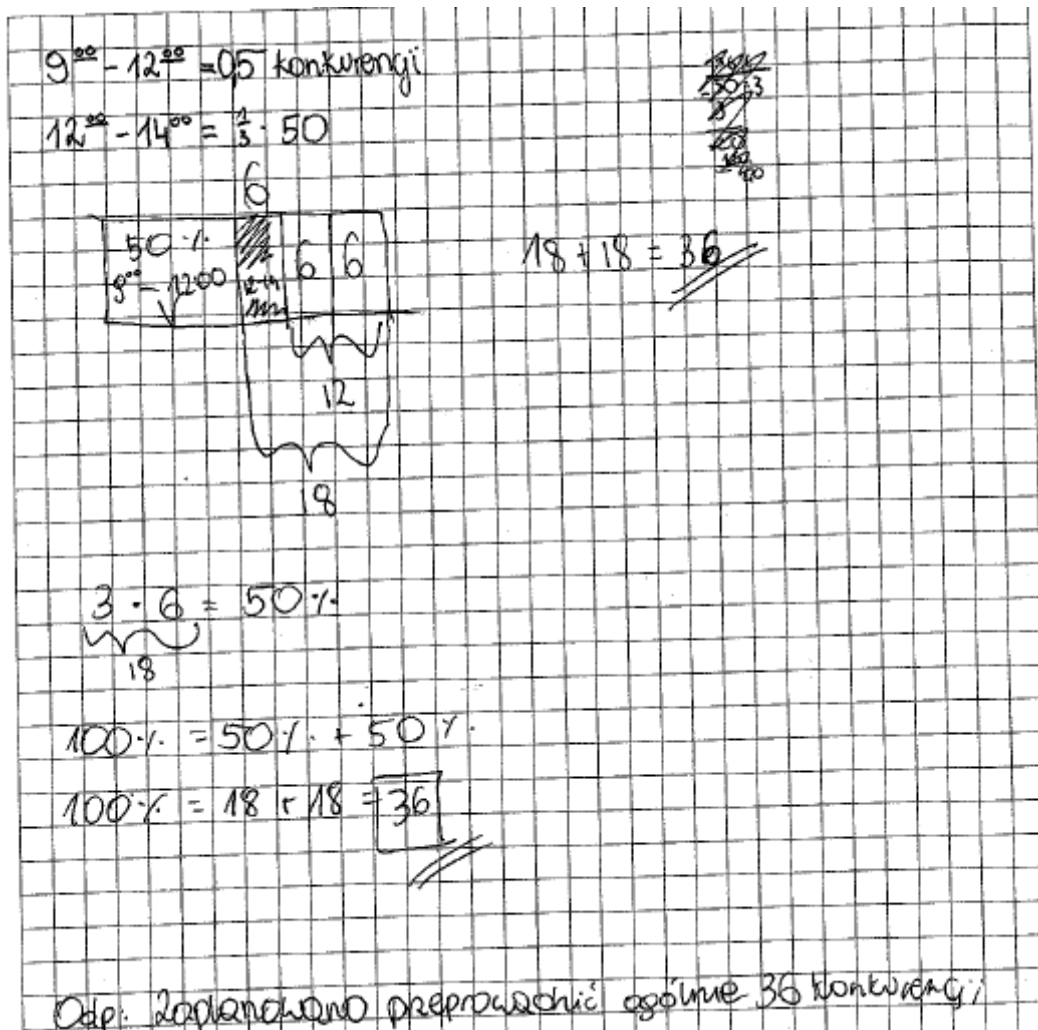 9⁰⁰ - 12⁰⁰ = 0,5 konkurencji
12⁰⁰ - 14⁰⁰ = 1/3 · 50
6
50 %
9⁰⁰ - 12⁰⁰
6 6
12
18
18 + 18 = 36
3 · 6 = 50 %
18
100 % = 50 % + 50 %.
100 % = 18 + 18 = 36
Odp: Zaplanowano przeprowadzić ogólnie 36 konkurencji